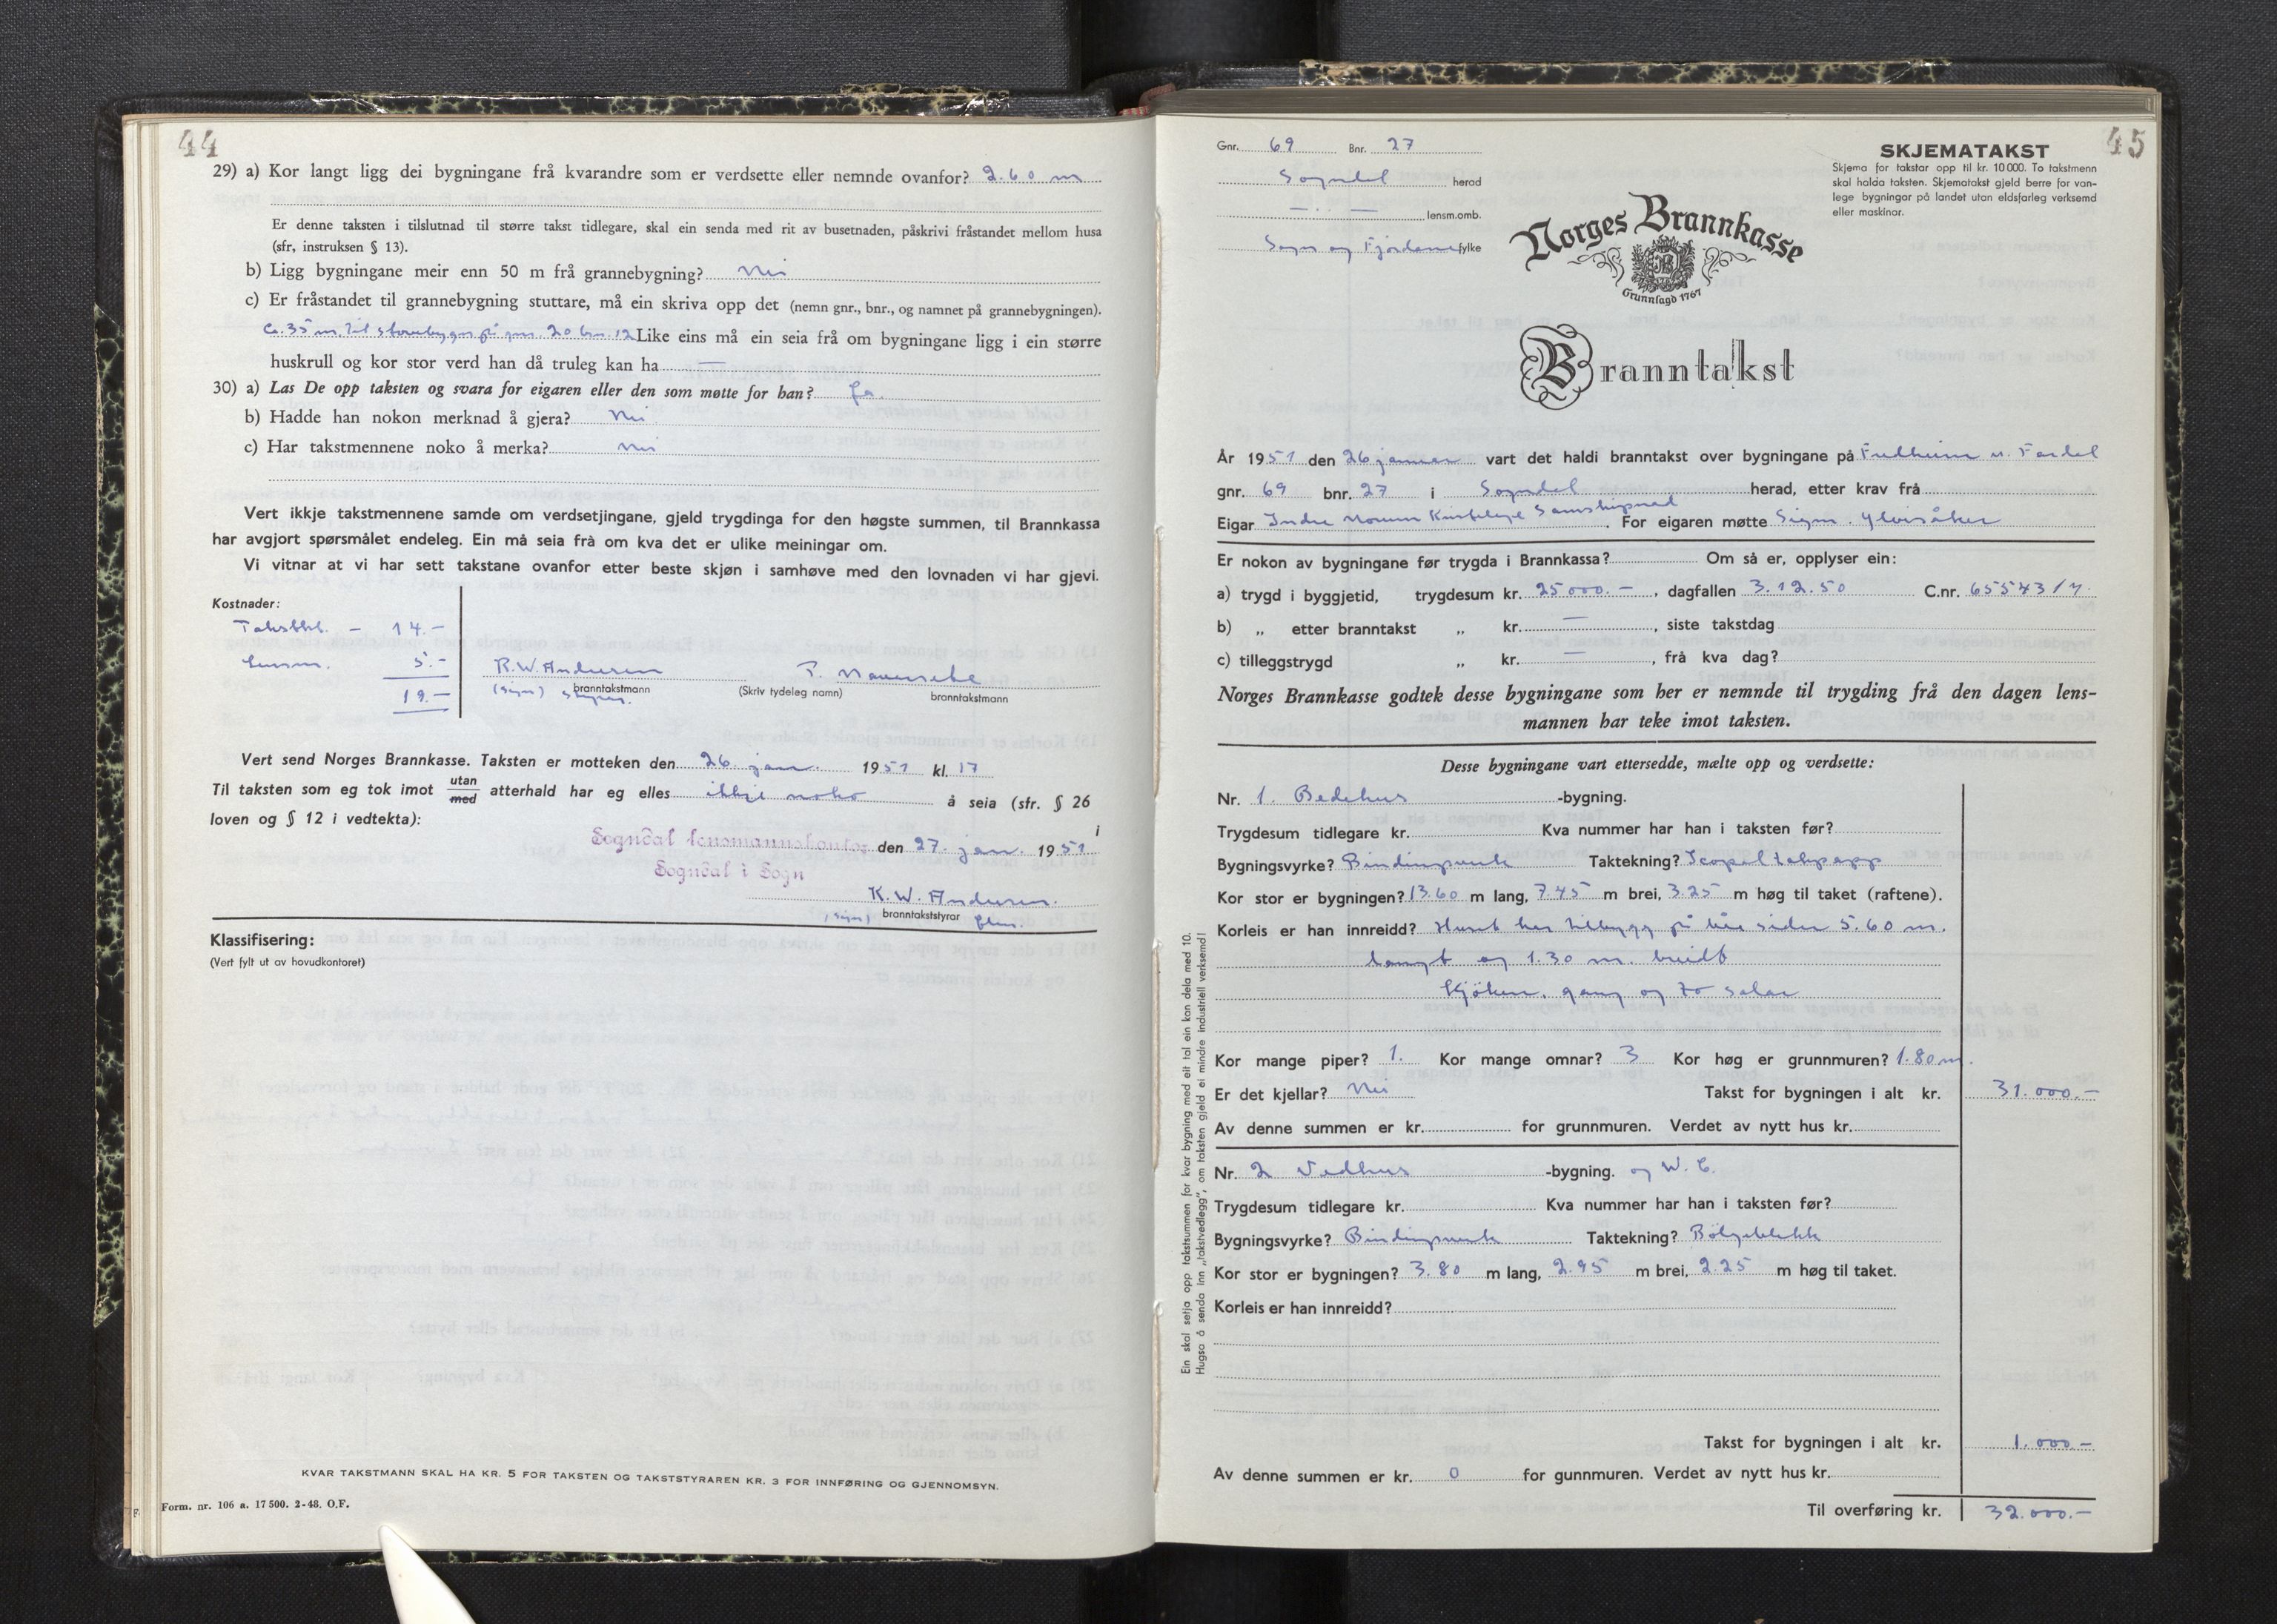 44
29) a) Kor langt ligg dei bygningane frå kvarandre som er verdsette eller nemnde ovanfor? 2.60 m
Er denne taksten i tilslutnad til større takst tidlegare, skal ein senda med rit av busetnaden, påskrivi fråstandet mellom husa
(sfr, instruksen § 13).
b) Ligg bygningane meir enn 50 m frå grannebygning? Nei
c) Er fråstandet til grannebygning stuttare, må ein skriva opp det (nemn gnr., bnr., og namnet på grannebygningen).
Ca. 35 m. til stovebygn på gnr. 20 bnr. 12 Like eins må ein seia frå om bygningane ligg i ein større
huskrull og kor stor verd han då truleg kan ha —
30) a) Las De opp taksten og svara for eigaren eller den som møtte for han? Ja.
b) Hadde han nokon merknad å gjera? Nei
c) Har takstmennene noko å merka? Nei
Vert ikkje takstmennene samde om verdsetjingane, gjeld trygdinga for den høgste summen, til Brannkassa
har avgjort spørsmålet endeleg. Ein må seia frå om kva det er ulike meiningar om.
Vi vitnar at vi har sett takstane ovanfor etter beste skjøn i samhøve med den lovnaden vi har gjevi.
Kostnader:
14.-
Lensm. 5.-
19.-
K.W. Andersen
(sign) branntakstmann
(Skriv tydeleg namn)
branntakstmann
Vert send Norges Brannkasse. Taksten er motteken den 26. jan. 1951 kl. 17
Til taksten som eg tok imot utan/med atterhald har eg elles ikkje noko å seia (sfr. § 26
loven og § 12 i vedtekta):
Sogndal lensmannskontor den 27. jan. 1951
Sogndal i Sogn
K.W. Andersen.
(sign) branntakststyrar
Klassifisering:
(Vert fylt ut av hovudkontoret)
KVAR TAKSTMANN SKAL HA KR. 5 FOR TAKSTEN OG TAKSTSTYRAREN KR. 3 FOR INNFØRING OG GJENNOMSYN.
Form. nr. 106 a. 17500. 2-48. O.F.
45
Gnr. 69 Bnr. 27
Sogndal herad
— " — lensm.omb.
Sogn og Fjordane fylke
SKJEMATAKST
Skjema for takstar opp til kr. 10 000. To takstmenn
skal halda taksten. Skjematakst gjeld berre for van-
lege bygningar på landet utan eldsfarleg verksemd
eller maskinor.
Norges Brannkasse
Grunnlagd 1767
Branntakst
År 1951 den 26 januar vart det haldi branntakst over bygningane på Fredheim u. Fardal
gnr. 69 bnr. 27 i Sogndal herad, etter krav frå
Eigar Indre Norum Kristelege Samskipnad. For eigaren møtte Sigm. Ylvisåker
Er nokon av bygningane før trygda i Brannkassa? Om så er, opplyser ein:
a) trygd i byggjetid, trygdesum kr. 25000.—, dagfallen 3.12.50 C.nr. 65543/4.
b) „ etter branntakst „ kr. —, siste takstdag
c) tilleggstrygd „ kr. —, frå kva dag?
Norges Brannkasse godtek desse bygningane som her er nemnde til trygding frå den dagen lens-
mannen har teke imot taksten.
Desse bygningane vart ettersedde, mælte opp og verdsette:
Nr. 1. Bedehus -bygning.
Trygdesum tidlegare kr. Kva nummer har han i taksten før?
Bygningsvyrke? Bindingsverk Taktekning? Icopal takpapp
Kor stor er bygningen? 13.60 m lang, 7.45 m brei, 3.25 m høg til taket (raftene).
Korleis er han innreidd? Huset har tilbygg på ei side 5.60 m.
langt og 1.30 m. breidt
Kjøken, gang og to salar
Kor mange piper? 1. Kor mange omnar? 3 Kor høg er grunnmuren? 1.80 m.
Er det kjellar? Nei Takst for bygningen i alt kr. 31.000.—
Av denne summen er kr. for grunnmuren. Verdet av nytt hus kr.
Nr. 2 Vedhus -bygning. og W.C.
Trygdesum tidlegare kr. Kva nummer har han i taksten før?
Bygningsvyrke? Bindingsverk Taktekning? Bølgeblekk
Kor stor er bygningen? 3.80 m lang, 2.95 m brei, 2.25 m høg til taket.
Korleis er han innreidd?
Takst for bygningen i alt kr. 1.000—
Av denne summen er kr. 0 for gunnmuren. Verdet av nytt hus kr.
Til overføring kr. 32.000.—
Ein skal setja opp takstsummen for kvar bygning med eit tal ein kan dela med 10.
Hugsa å senda inn „takstvedlegg", om taksten gjeld ei mindre industriell verksemd!